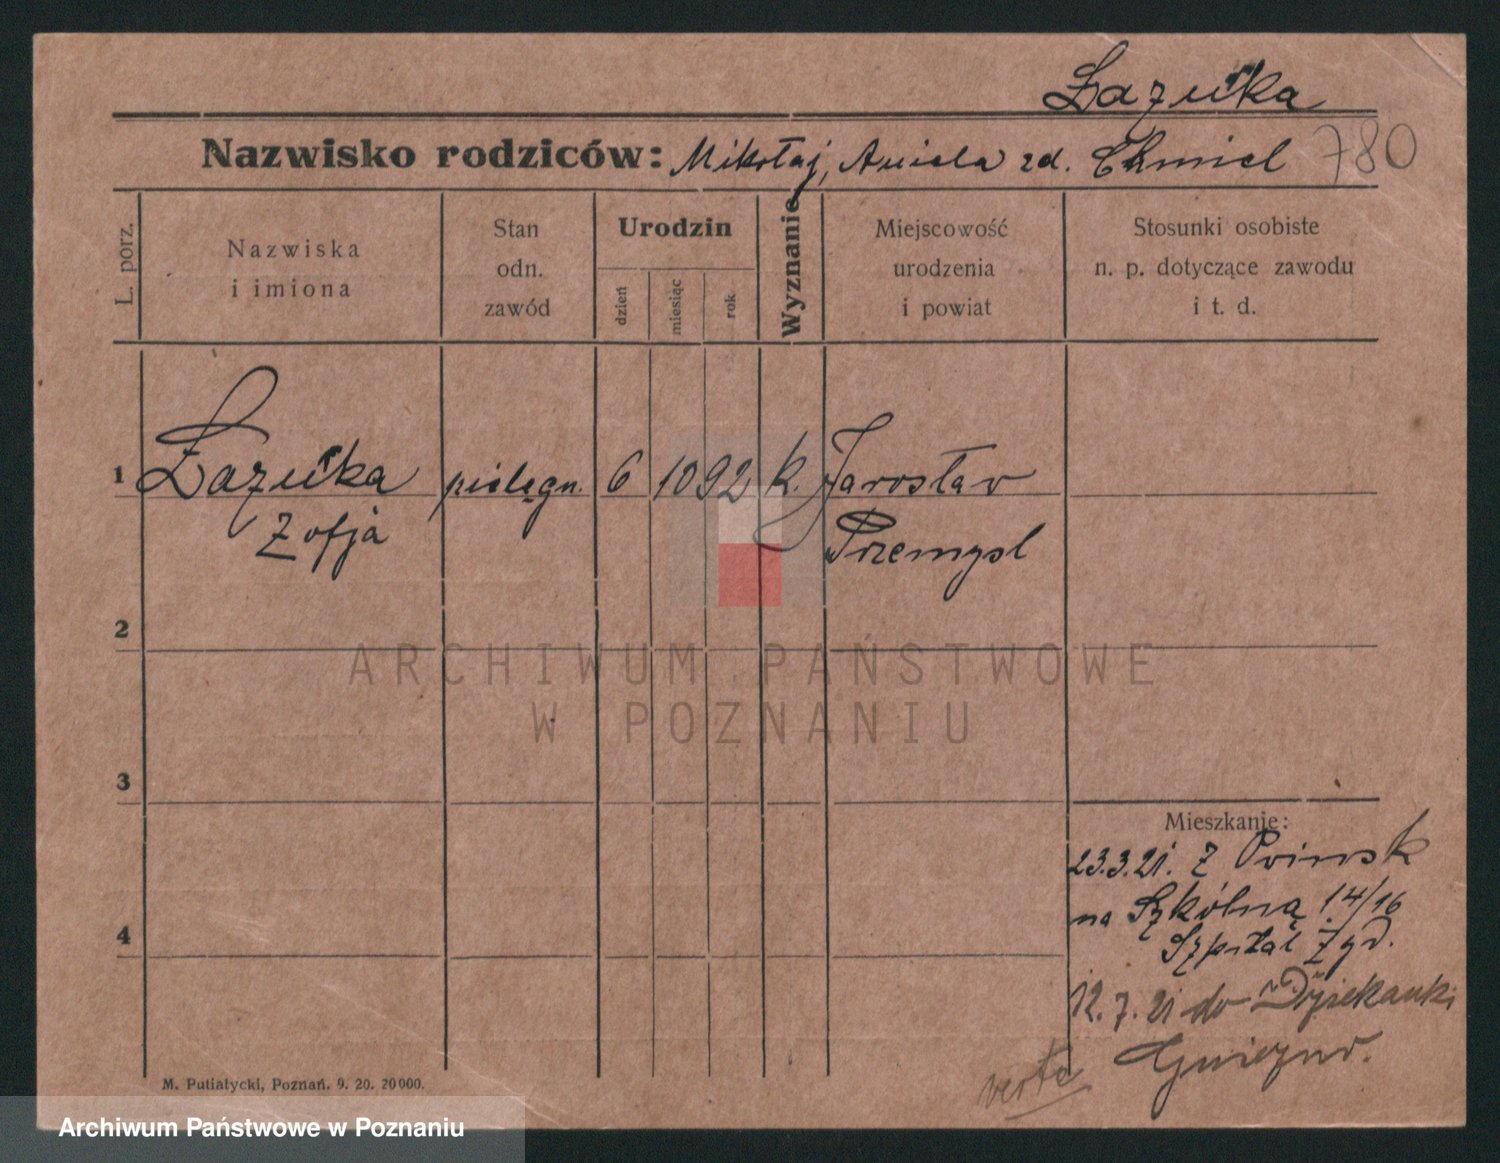 Łazućka
Nazwisko rodziców: Mikołaj, Aniela zd. Chmiel 780
L. porz.
Nazwiska
i imiona
Stan
odn.
zawód
Urodzin
dzień
miesiąc
rok
Wyznanie
Miejscowość
urodzenia
i powiat
Stosunki osobiste
n. p. dotyczące zawodu
i t. d.
1 Łazućka pielęgn. 6 10 92 k. Jarosław
Zofja Przemysl
2
3
4
Mieszkanie:
23.3.21. z
na Szkólną 14/16
Szpital Żyd.
12.7.21 do Dziekanki
Gniezno.
verte
M. Putiatycki, Poznań. 9. 20. 20000.
ARCHIWUM PAŃSTWOWE
W POZNANIU
Archiwum Państwowe w Poznaniu